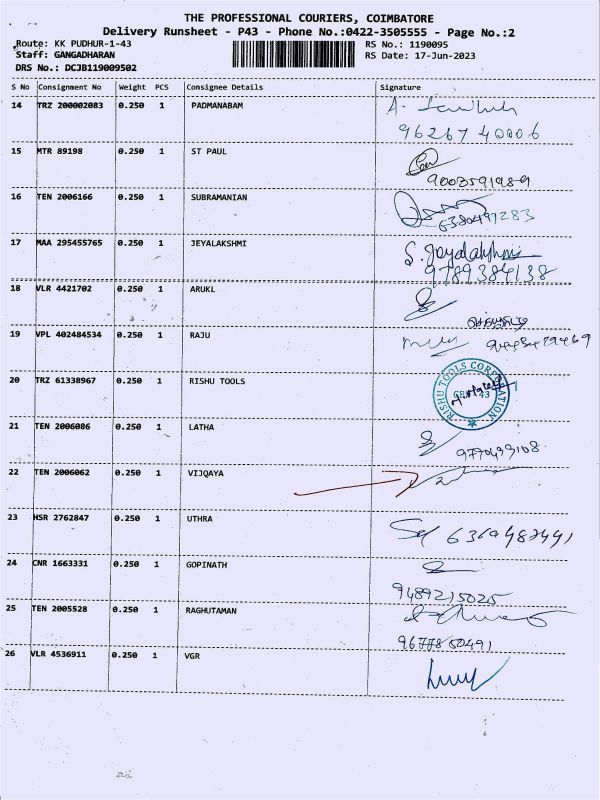 THE PROFESSIONAL COURIERS, COIMBATORE
Delivery Runsheet - P43 - Phone No.:0422-3505555 - Page No.:2
Route: KK PUDHUR-1-43 RS No.: 1190095
Staff: GANGADHARAN RS Date: 17-Jun-2023
DRS No.: DCJB119009502
S No Consignment No Weight PCS Consignee Details Signature
14 TRZ 200002083 0.250 1 PADMANABAM
96267 40006
15 MTR 89198 0.250 1 ST PAUL
9003591989
16 TEN 2006166 0.250 1 SUBRAMANIAN
6380497283
17 MAA 295455765 0.250 1 JEYALAKSHMI S. Jayalakshmi
9789384138
18 VLR 4421702 0.250 1 ARUKL
19 VPL 402484534 0.250 1 RAJU
20 TRZ 61338967 0.250 1 RISHU TOOLS RISHU TOOLS CORPORATION
43
21 TEN 2006086 0.250 1 LATHA
22 TEN 2006062 0.250 1 VIJQAYA
23 HSR 2762847 0.250 1 UTHRA
24 CNR 1663331 0.250 1 GOPINATH
9489215025
25 TEN 2005528 0.250 1 RAGHUTAMAN
9677850491
26 VLR 4536911 0.250 1 VGR